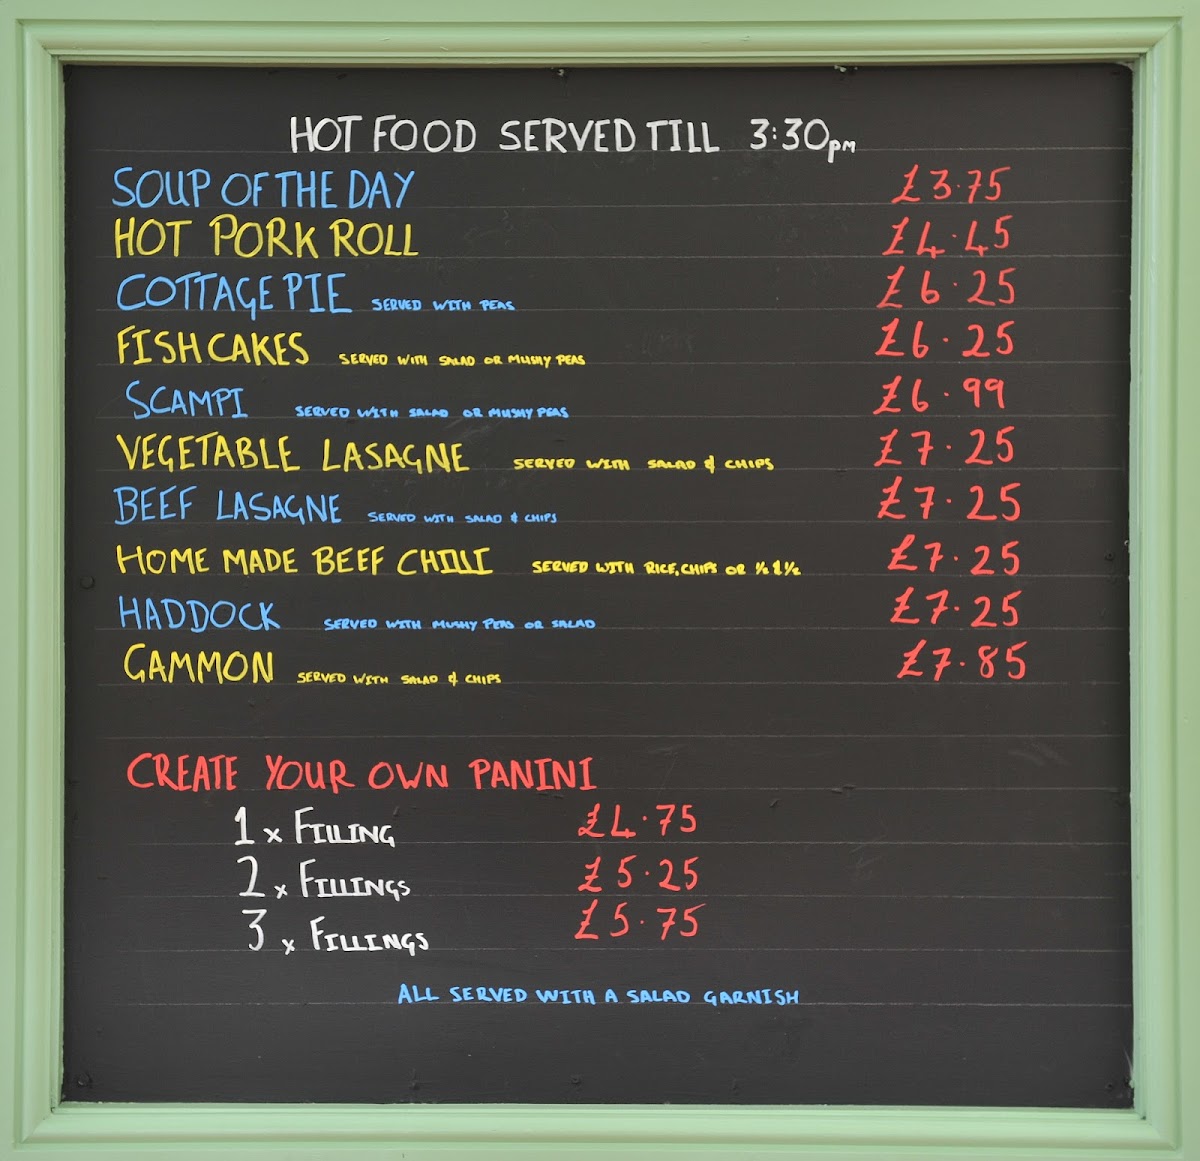 HOT FOOD SERVED TILL 3:30pm
SOUP OF THE DAY £3.75
HOT PORK ROLL £4.45
COTTAGE PIE SERVED WITH PEAS £6.25
FISHCAKES SERVED WITH SALAD OR MUSHY PEAS £6.25
SCAMPI SERVED WITH SALAD OR MUSHY PEAS £6.99
VEGETABLE LASAGNE SERVED WITH SALAD & CHIPS £7.25
BEEF LASAGNE SERVED WITH SALAD & CHIPS £7.25
HOME MADE BEEF CHILLI SERVED WITH RICE, CHIPS OR ½ & ½ £7.25
HADDOCK SERVED WITH MUSHY PEAS OR SALAD £7.25
GAMMON SERVED WITH SALAD & CHIPS £7.85
CREATE YOUR OWN PANINI
1 x FILLING £4.75
2 x FILLINGS £5.25
3 x FILLINGS £5.75
ALL SERVED WITH A SALAD GARNISH